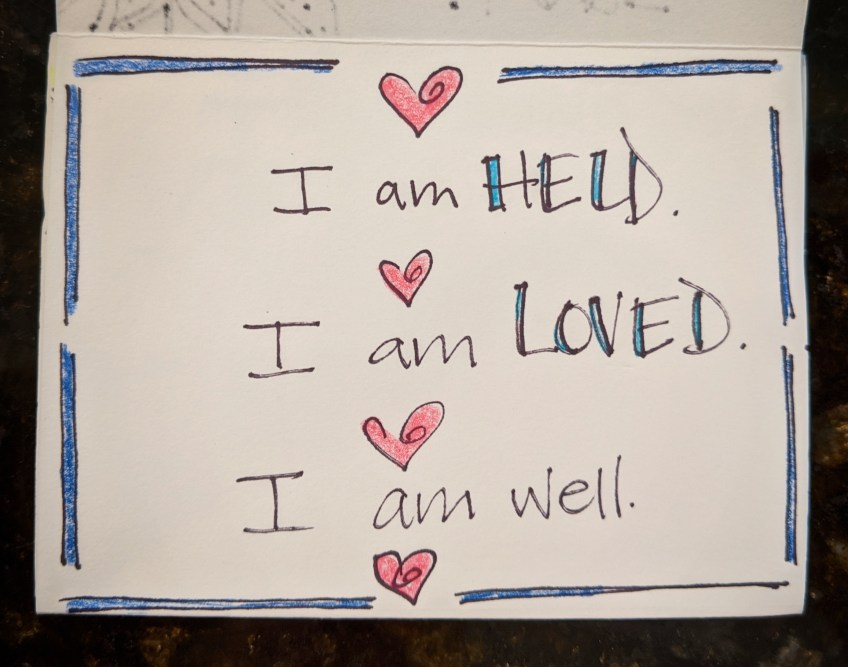 I am HELD.
I am LOVED.
I am well.